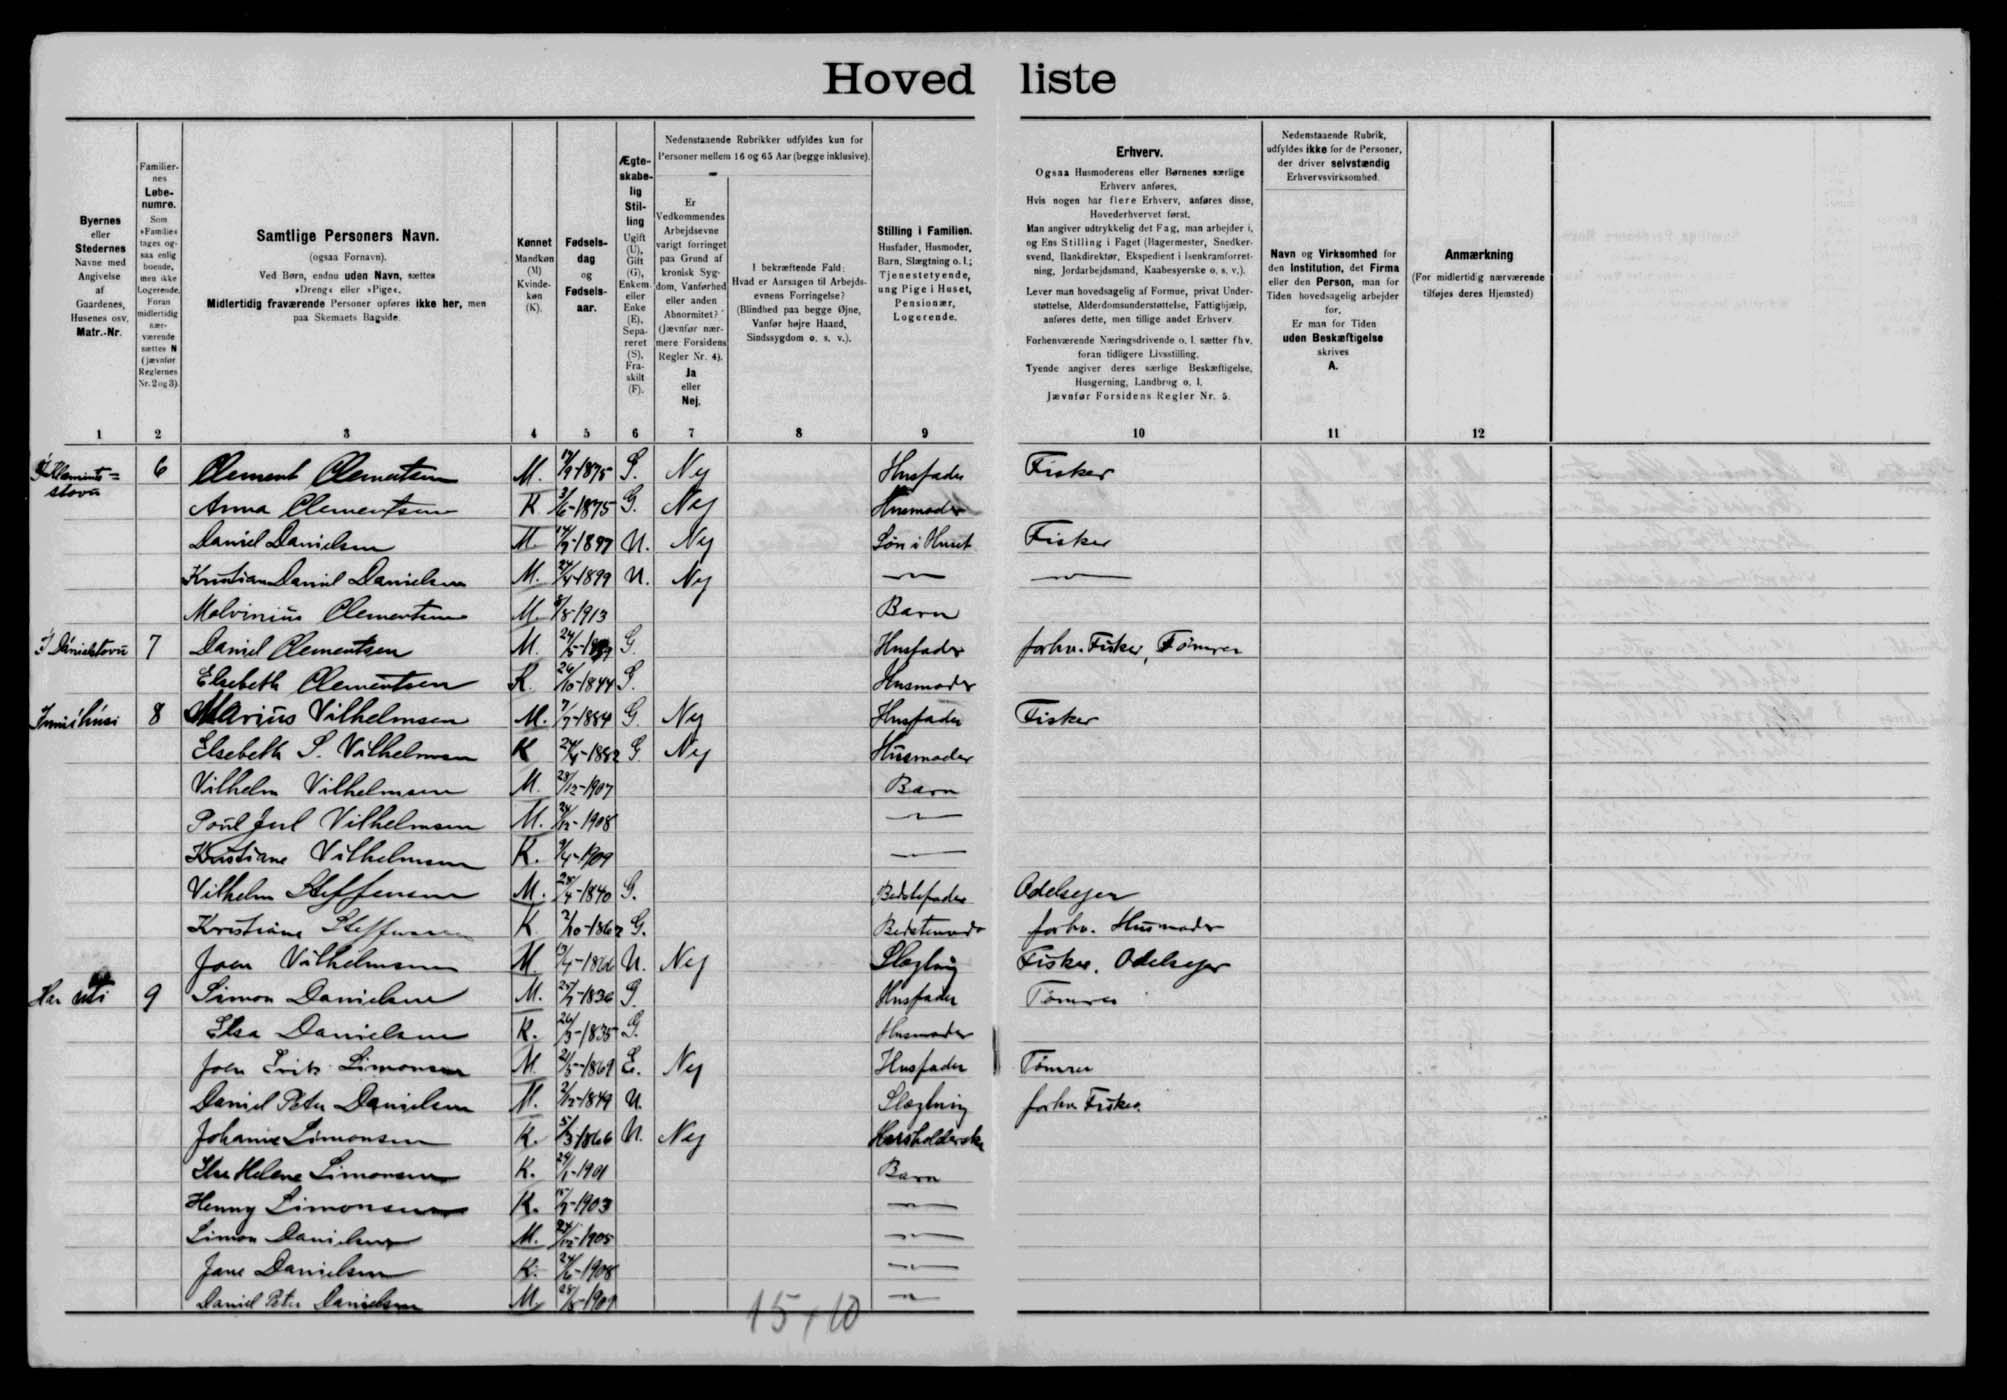 Hoved liste
Byernes eller Stedernes Navne med Angivelse af Gaardenes, Husenes osv. Matr.-Nr.
Familiernes Løbenumre. Som »Familie« tages ogsaa enlig boende, men ikke Logerende. Foran midlertidig nærværende sættes N (jævnfør Reglernes Nr. 2 og 3).
Samtlige Personers Navn. (ogsaa Fornavn). Ved Børn, endnu uden Navn, sættes »Dreng« eller »Pige«. Midlertidig fraværende Personer opføres ikke her, men paa Skemaets Bagside.
Kønnet Mandkøn (M) Kvindekøn (K).
Fødselsdag og Fødselsaar.
Ægteskabelig Stilling Ugift (U), Gift (G), Enkem. eller Enke (E), Separeret (S), Fraskilt (F).
Nedenstaaende Rubrikker udfyldes kun for Personer mellem 16 og 65 Aar (begge inklusive).
Er Vedkommendes Arbejdsevne varigt forringet paa Grund af kronisk Sygdom, Vanførhed eller anden Abnormitet? (Jævnfør nærmere Forsidens Regler Nr. 4). Ja eller Nej.
I bekræftende Fald: Hvad er Aarsagen til Arbejdsevnens Forringelse? (Blindhed paa begge Øjne, Vanfør højre Haand, Sindssygdom o. s. v.).
Stilling i Familien. Husfader, Husmoder, Barn, Slægtning o. l.; Tjenestetyende, ung Pige i Huset, Pensionær, Logerende.
Erhverv.
Ogsaa Husmoderens eller Børnenes særlige Erhverv anføres.
Hvis nogen har flere Erhverv, anføres disse, Hovederhvervet først.
Man angiver udtrykkelig det Fag, man arbejder i, og Ens Stilling i Faget (Bagermester, Snedkersvend, Bankdirektør, Ekspedient i Isenkramforretning, Jordarbejdsmand, Kaabesyerske o. s. v.).
Lever man hovedsagelig af Formue, privat Understøttelse, Alderdomsunderstøttelse, Fattighjælp, anføres dette, men tillige andet Erhverv.
Forhenværende Næringsdrivende o. l. sætter fhv. foran tidligere Livsstilling.
Tyende angiver deres særlige Beskæftigelse, Husgerning, Landbrug o. l.
Jævnfør Forsidens Regler Nr. 5.
Nedenstaaende Rubrik, udfyldes ikke for de Personer, der driver selvstændig Erhvervsvirksomhed.
Navn og Virksomhed for den Institution, det Firma eller den Person, man for Tiden hovedsagelig arbejder for. Er man for Tiden uden Beskæftigelse skrives A.
Anmærkning (For midlertidig nærværende tilføjes deres Hjemsted)
1 2 3 4 5 6 7 8 9 10 11 12
6 Clement Clementsen M. 1875 G. Nej Husfader Fisker
stovu Anna Clementsen K 1875 G. Nej Husmoder
Daniel Danielsen M 1897 U. Nej Søn i Huset Fisker
Kristian Daniel Danielsen M. 1899 U. Nej — —
Malvinius Clementsen M. 8/8 1913 Barn
7 Daniel Clementsen M. G. Husfader forhv. Fisker, Tømrer
Elsebeth Clementsen K. 26/10-1844 G. Husmoder
Innihúsi 8 Marius Vilhelmsen M. 7/7-1884 G. Nej Husfader Fisker
Elsebeth S. Vilhelmsen K 1882 G. Nej Husmoder
Vilhelm Vilhelmsen M. 1907 Barn
Poul Juul Vilhelmsen M. 24/12-1908 —
Kristiane Vilhelmsen K. 1909 —
Vilhelm Steffensen M. 1840 G. Bedstefader Odelsejer
Kristiane Steffensen K. 2/10-1862 G. forhv. Husmoder
Joen Vilhelmsen M U. Nej Slægtning Fisker, Odelsejer
9 Simon Danielsen M. 1836 G. Husfader Tømrer
Elsa Danielsen K. 1835 G. Husmoder
Joen Erik Simonsen M. 21/5-1869 E. Nej Husfader Tømrer
Daniel Peter Danielsen M. 2/12-1849 U. Slægtning forhv. Fisker
Johanne Simonsen K. 5/3 1866 U. Nej Husholderske
Else Helene Simonsen K. 29/1-1901 Barn
Henny Simonsen K. 1903 —
Simon Danielsen M. 24/12-1905 —
Jane Danielsen K. 24/6-1908 —
Daniel Peter Danielsen M —
15+10